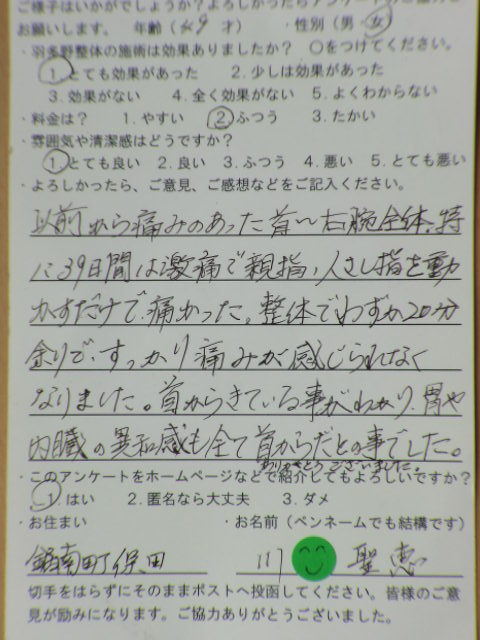 様子はいかがでしょうか？よろしかったらアンケートのご協力を
お願いします。 年齢（ 49 才） ・性別（男・女）
・羽多野整体の施術は効果ありましたか？ ○をつけてください。
1. とても効果があった 2. 少しは効果があった
3. 効果がない 4. 全く効果がない 5. よくわからない
・料金は？ 1. やすい 2. ふつう 3. たかい
・雰囲気や清潔感はどうですか？
1. とても良い 2. 良い 3. ふつう 4. 悪い 5. とても悪い
・よろしかったら、ご意見、ご感想などをご記入ください。
以前から痛みのあった首〜右腕全体、特
に39日間は激痛で親指、人さし指を動
かすだけで痛かった。整体でわずか20分
余りで、すっかり痛みが感じられなく
なりました。首からきている事がわかり、胃や
内臓の異和感も全て首からだとの事でした。
ありがとうございました。
・このアンケートをホームページなどで紹介してもよろしいですか？
1. はい 2. 匿名なら大丈夫 3. ダメ
・お住まい ・お名前（ペンネームでも結構です）
鋸南町保田 川 聖恵
切手をはらずにそのままポストへ投函してください。皆様のご意
見が励みになります。ご協力ありがとうございました。